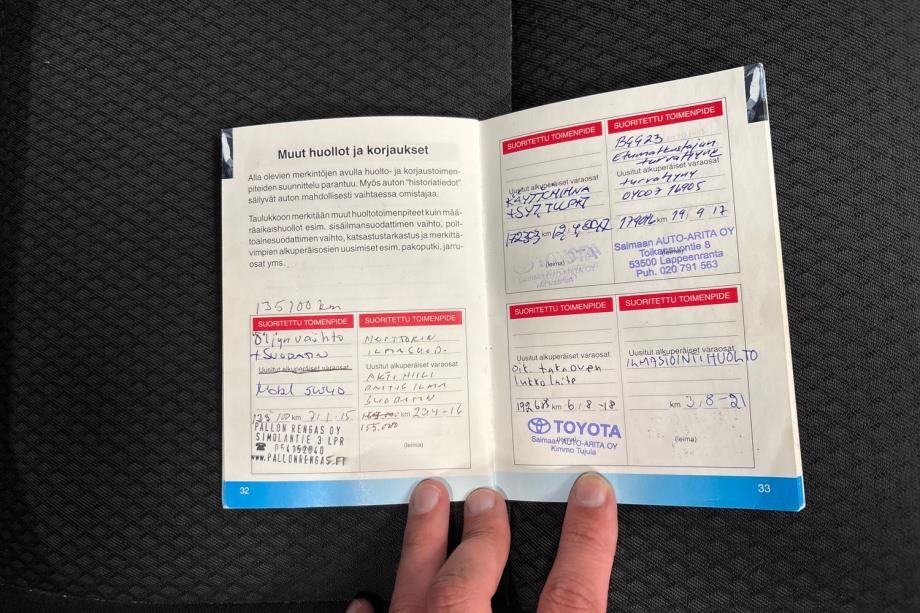 Muut huollot ja korjaukset
Alla olevien merkintöjen avulla huolto- ja korjaustoimen-
piteiden suunnittelu parantuu. Myös auton "historiatiedot"
säilyvät auton mahdollisesti vaihtaessa omistajaa.
Taulukkoon merkitään muut huoltotoimenpiteet kuin mää-
räaikaishuollot esim. sisäilmansuodattimen vaihto, polt-
toainesuodattimen vaihto, katsastustarkastus ja merkittä-
vimpien alkuperäisosien uusimiset esim. pakoputki, jarru-
osat yms.
135100 km
SUORITETTU TOIMENPIDE
Öljynvaihto
+SUODATIN
Uusitut alkuperäiset varaosat
Mobil 5W40
135100 km 7.1.15
PALLON RENGAS OY
SIMOLANTIE 3 LPR
☎ 054152040
www.PALLONRENGAS.FI
SUORITETTU TOIMENPIDE
MOOTTORIN
ILMASUOD.
Uusitut alkuperäiset varaosat
AKTIIVIILI
RAITIS ILMA
SUODATIN
km 23.4-16
155.000
(leima)
32
SUORITETTU TOIMENPIDE
Uusitut alkuperäiset varaosat
KÄYTT.HIHNA
+SYT.TULPAT
172353 km
(leima)
SUORITETTU TOIMENPIDE
BGG23
Etumatkustajan
turvatyyny
Uusitut alkuperäiset varaosat
turvatyyny
04007 76905
km 19.9.17
Saimaan AUTO-ARITA OY
Toikansuontie 8
(leima)
53500 Lappeenranta
Puh. 020 791 563
SUORITETTU TOIMENPIDE
Uusitut alkuperäiset varaosat
Oik. takaoven
lukkolaite
192688 km 6.8-18
TOYOTA
(leima)
Saimaan AUTO-ARITA OY
Kimmo Tujula
SUORITETTU TOIMENPIDE
Uusitut alkuperäiset varaosat
ILMASTOINTIHUOLTO
km 3.8-21
(leima)
33